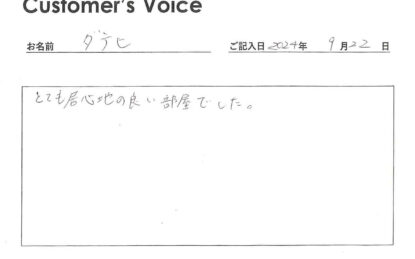 Customer's Voice
お名前 ダテヒ ご記入日 2024年 9月22日
とても居心地の良い部屋でした。